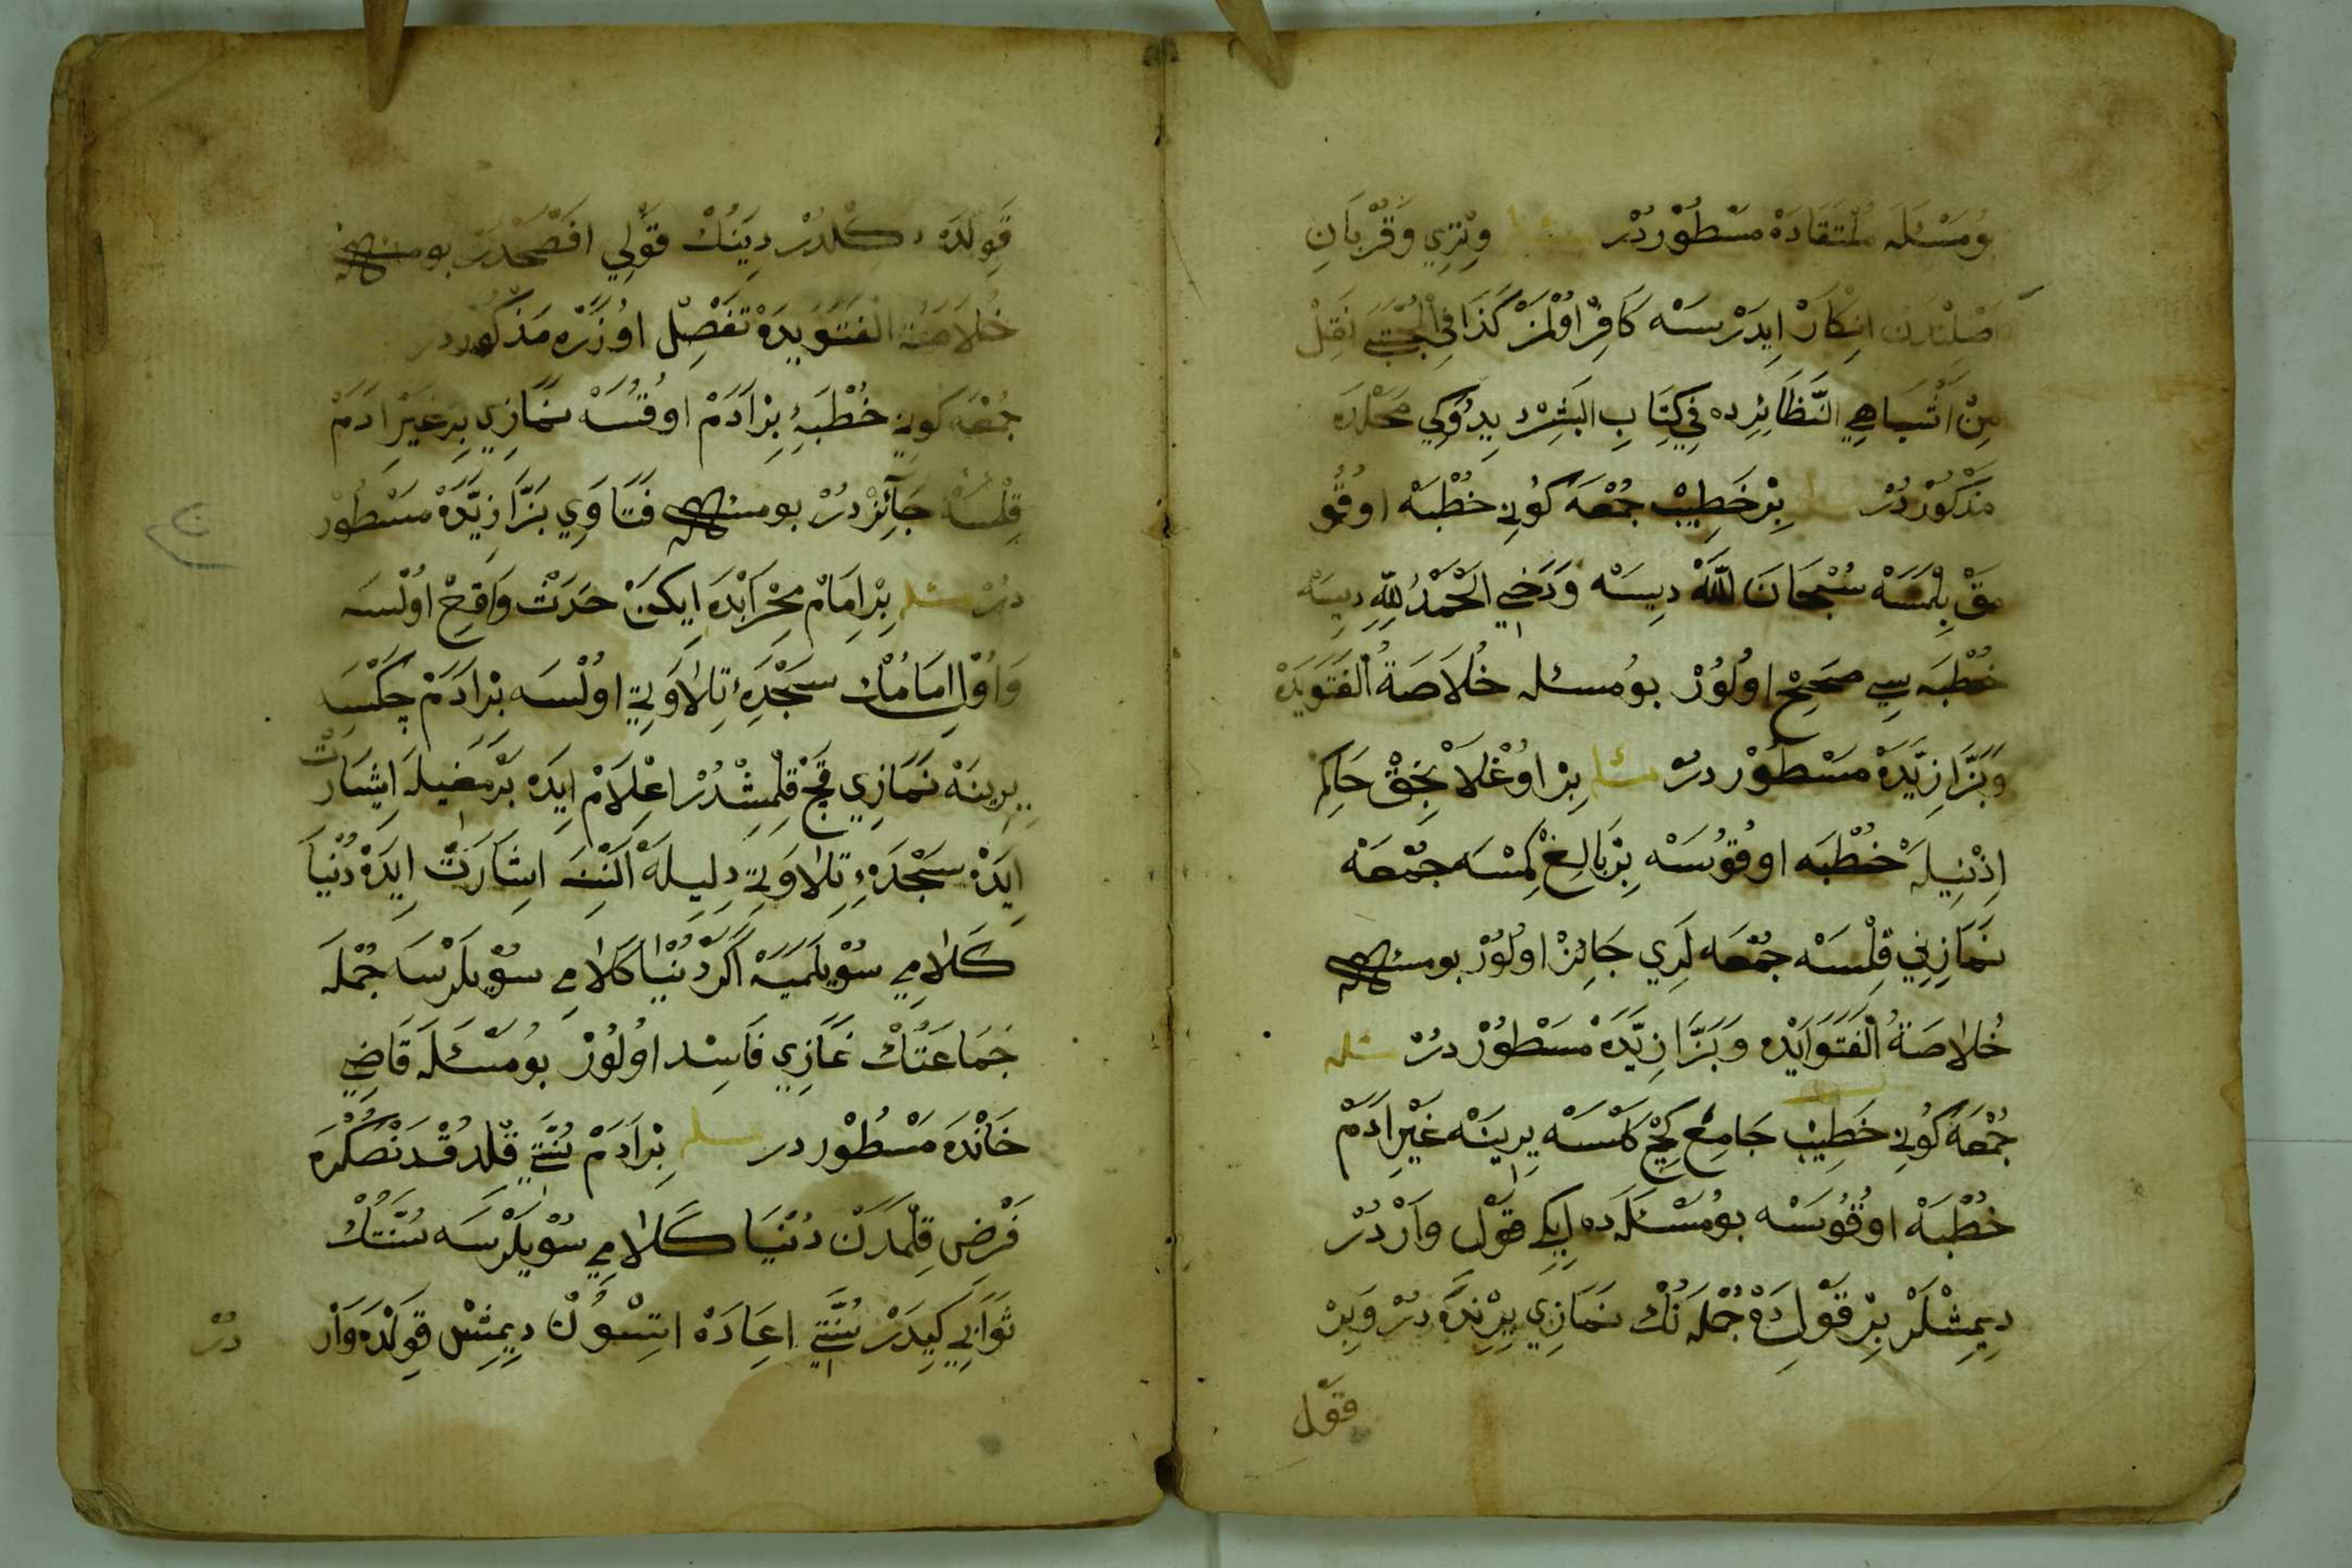 بُومَسْئَلَه مُلْتَقَادَهْ مَسْطُوْر دُرْ مسئله وِتْرِي وَقُرْبَانِ
اَصْلِنْدَنْ اِنْكَارْ اِيدَرْسَه كَافِرْ اوُلْمَزْ كَذَا فِي الْمُجْتَبَي نَقِلْ
مِنْ اَشْبَاهِ النَّظَائِرِده فِي كِتَابِ دِيدُوكِي مَحَلْدَه
مَذْكُوْر دُرْ مسئله بِرْ خَطِيبْ جُمْعَه كُونِي خُطْبَهْ اوُقُو
مَقْ بِلْمَسَهْ سُبْحَانَ اللّٰه دِيسَهْ وَدَخِي اَلْحَمْدُ لِلّٰهِ دِيسَهْ
خُطْبَه سِي صَحِيحْ اوُلُوُرْ بُومسئله خُلَاصَةُ الْفَتَوَيدَهْ
وَبَزَّازِيَّدَهْ مَسْطُوْر دُرْ مسئله بِرْ اوُغْلَانْجِقْ حَاكِم
اِذْنِيلَهْ خُطْبَه اوُقُوسَهْ بِرْ بَالِغْ كِمْسَه جُمْعَهْ
نَمَازِنِي قِلْسَهْ جُمْعَه لَرِي جَائِزْ اوُلُوُرْ بو مسئله
خُلَاصَةُ الْفَتَوَايْدَه وَبَزَّازِيَّدَهْ مَسْطُوُرْ دُرْ مسئله
جُمْعَه كُونِي خَطِيبْ جَامِعْ كِجْ كَلْسَهْ يِرِينَهْ غَيْرِ اَدَمْ
خُطْبَهْ اوُقُوسَهْ بومَسْئَلَه ده اِيكِي قَوْلْ وَارْدُرْ
دِيمِشْلَرْ بِرْ قَوْلِدَهْ جُمْلَه نُكْ نَمَازِي يِرِنْدَه دُرْ وَبِرْ
قَوْل
قَوِلْدَه دِكِلْدُرْ دِيَنُكْ قَوْلِي اَفْصَحْدَرْ بومسئله
خُلَاصَةُ الْفَتَوَيدَهْ تَفَصِّلْ اوُزَرَه مَذْكُور در
جُمْعَه كُونِي خُطْبَهِٔ بِرْ اَدَمْ اوُقُسَهْ نَمَازِي بِرْ غَيْرِ اَدَمْ
قِلْسَهْ جَائِزْ دُرْ بومسئله فَتَاوَي بَزَّازِيَّدَهْ مَسْطُوْر
دُرْ مسئله بِرْ اِمَامْ مِحْرَابْدَه اِيكَنْ حَدَثْ وَاقِحْ اوُلْسَه
وَاوُل اِمَامُكْ سَجْدَهِٔ تِلَاوَتِي اوُلْسَه بِرْ اَدَمْ چِكْسَه
يِرِينَهْ نَمَازِي قَچْ قِلْمِشْدُرْ اِعْلَامْ اِيدَه بَرْمَغِيلَه اِشَارَتْ
اِيدَهْ سَجْدَهِٔ تِلَاوَتِي دِلِيلَهْ اَلْنِنَه اِشَارَتْ اِيدَهْ دُنْيَا
كَلَامِي سُوْيلَمَيَهْ اَكَرْ دُنْيَا كَلَامِي سُوْيلَرْسَه جُمْلَه
جَمَاعَتُكْ نَمَازِي فَاسِد اوُلُوُرْ بُومَسْئَلَه قَاضِي
خَانْدَه مَسْطُوْر در مسئله بِرْ اَدَمْ سُنَّتِي قِلْدُقْدَنْصُكْرَه
فَرْضِ قِلْمَدَنْ دُنْيَا كَلَامِي سُوْيلَرْسَه سُنَّتُكْ
ثَوَابِي كِيدَرْ سُنَّتِي اِعَادَهْ اِتْسُونْ دِيمِشْ قَوِلْدَه وَارْ
دُرْ